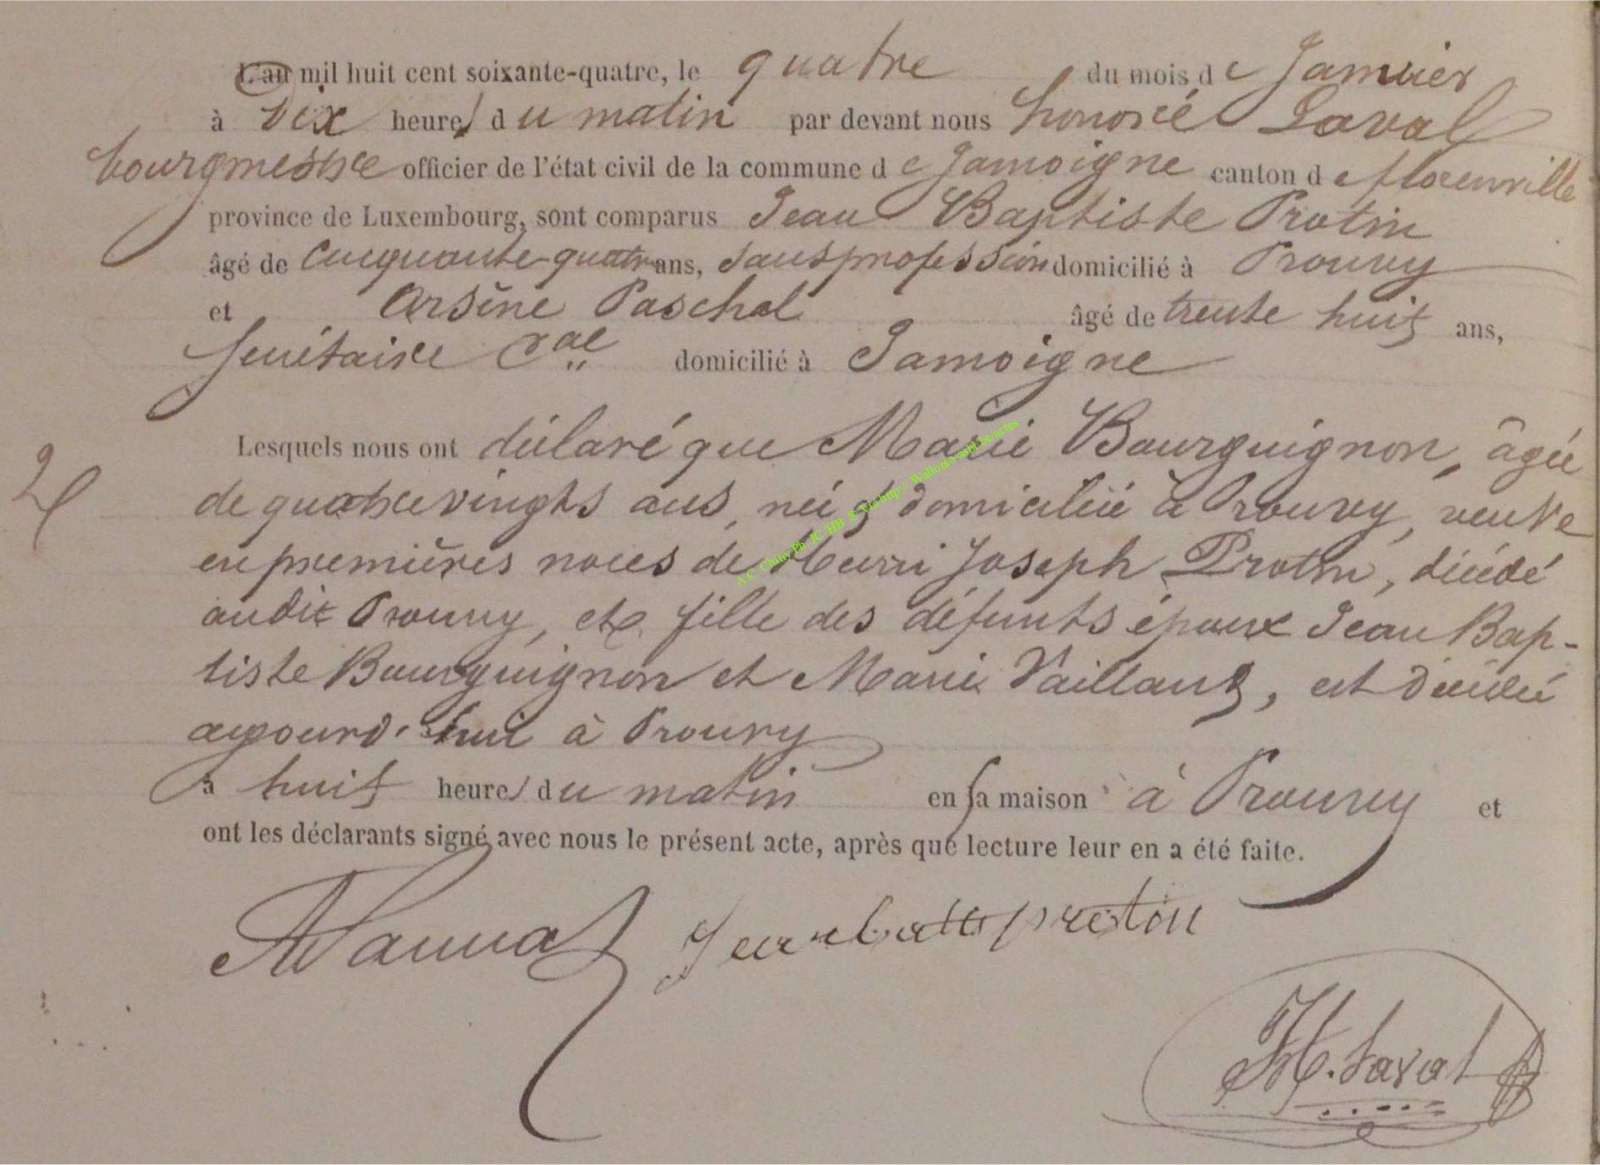 L'an mil huit cent soixante-quatre, le quatre du mois de Janvier
à Dix heures du matin par devant nous honoré Laval
bourgmestre officier de l'état civil de la commune de Jamoigne canton de florenville
province de Luxembourg, sont comparus Jean Baptiste Protin
âgé de Cinquante-quatre ans, sans profession domicilié à Prouvy
et Arsène Paschal âgé de trente huit ans,
Secrétaire Cal domicilié à Jamoigne
2
Lesquels nous ont déclaré que Marie Bourguignon, âgée
de quatrevingts ans, née et domiciliée à Prouvy, veuve
en premières noces de Henri Joseph Protin, décédé
audit Prouvy, et fille des défunts époux Jean Bap-
tiste Bourguignon et Marie Vaillant, est décédée
aujourd'hui à Prouvy
à huit heures du matin en sa maison à Prouvy et
ont les déclarants signé avec nous le présent acte, après que lecture leur en a été faite.
Jean batte protin
H. Laval